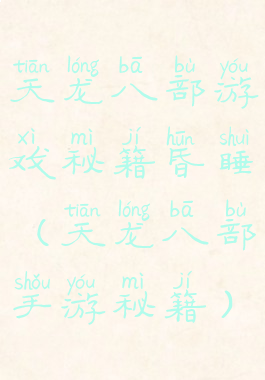 tiān lóng bā bù yóu
天龙八部游
xì mì jí hūn shuì
戏秘籍昏睡
tiān lóng bā bù
（天龙八部
shǒu yóu mì jí
手游秘籍）